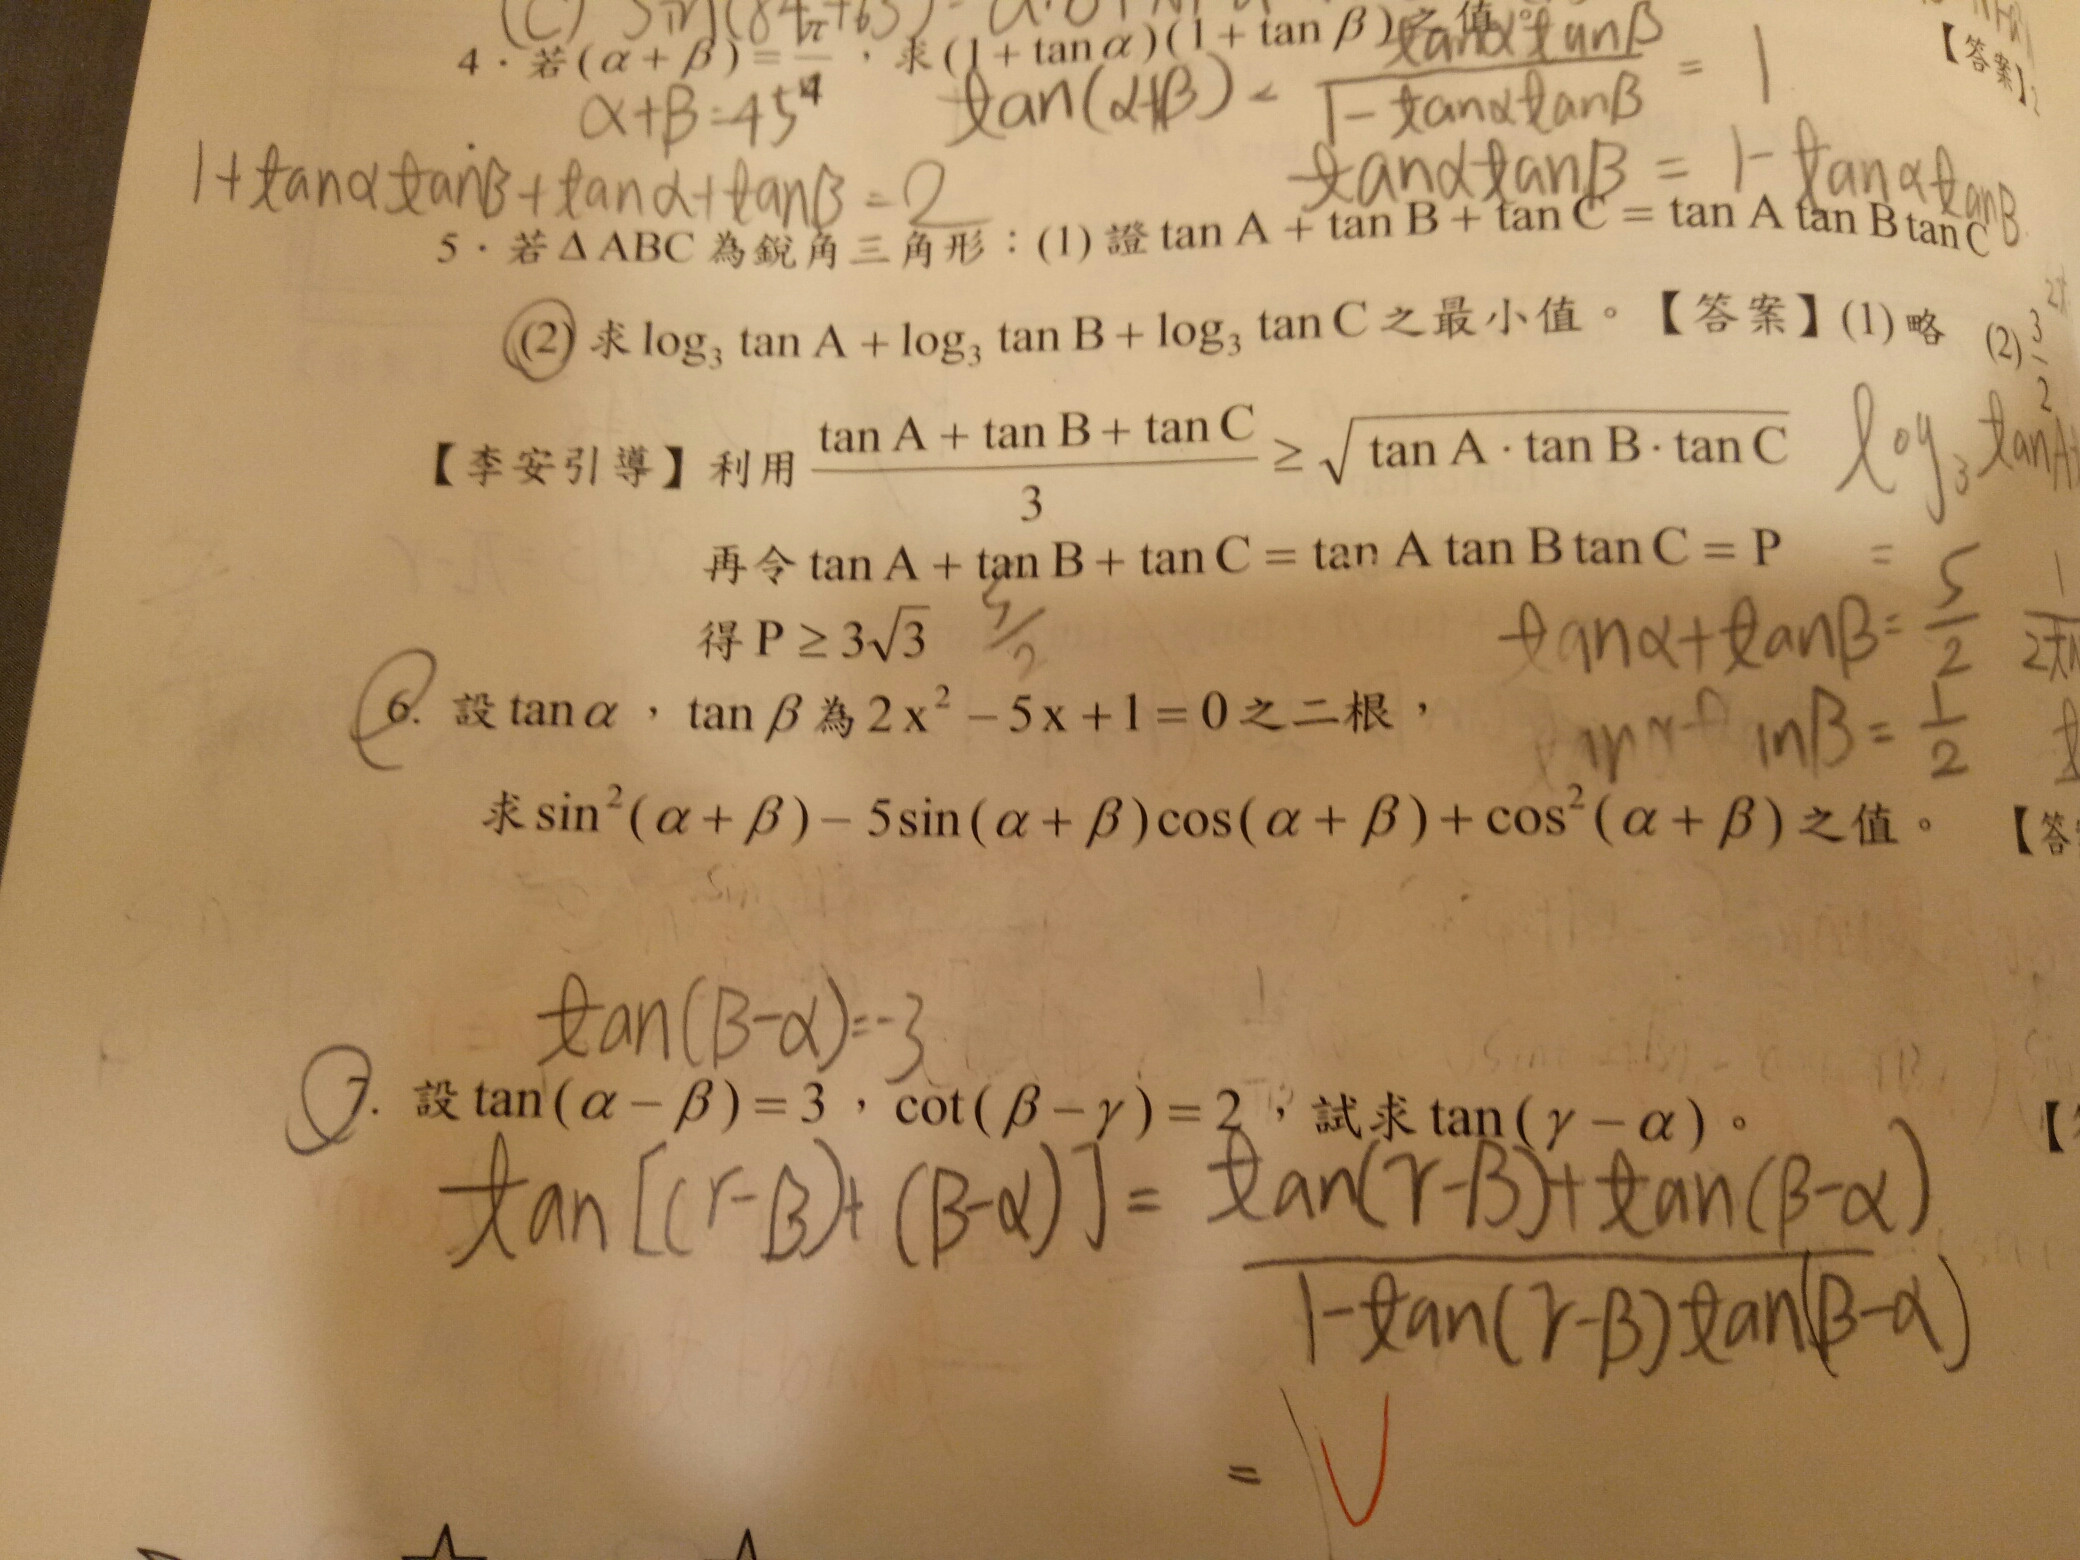 4．若(α+β)=π/4，求(1+tanα)(1+tanβ)之值。
【答案】2
α+β=45
tan(α+β)= tanα tanβ / 1-tanαtanβ = 1
tanαtanβ = 1-tanαtanβ
1+tanαtanβ+tanα+tanβ=2
5．若ΔABC為銳角三角形：(1)證tan A + tan B + tan C = tan A tan B tan C
(2)求log₃ tan A + log₃ tan B + log₃ tan C之最小值。【答案】(1)略 (2) 3/2
【李安引導】利用 (tan A + tan B + tan C)/3 ≥ √(tan A · tan B · tan C)
log₃ tanA+
再令tan A + tan B + tan C = tan A tan B tan C = P
得P ≥ 3√3
tanα+tanβ= 5/2
6. 設tanα，tanβ為2x² − 5x + 1 = 0之二根，
= 1/2
求sin²(α+β) − 5sin(α+β)cos(α+β) + cos²(α+β)之值。
tan(β-α)=-3
7. 設tan(α−β)=3，cot(β−γ)=2，試求tan(γ−α)。
tan[(γ-β)+(β-α)] = tan(γ-β)+tan(β-α) / 1-tan(γ-β)tan(β-α)
=